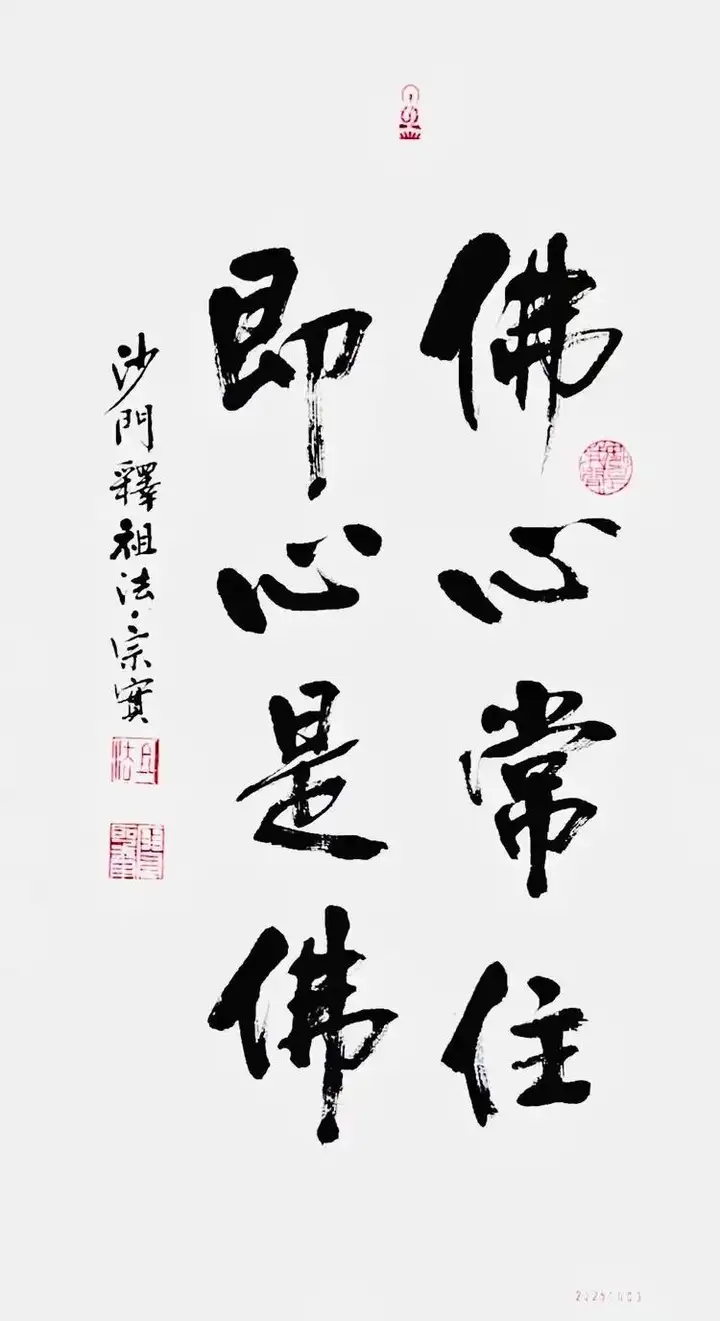 佛心常住
即心是佛
沙門釋祖法·宗實